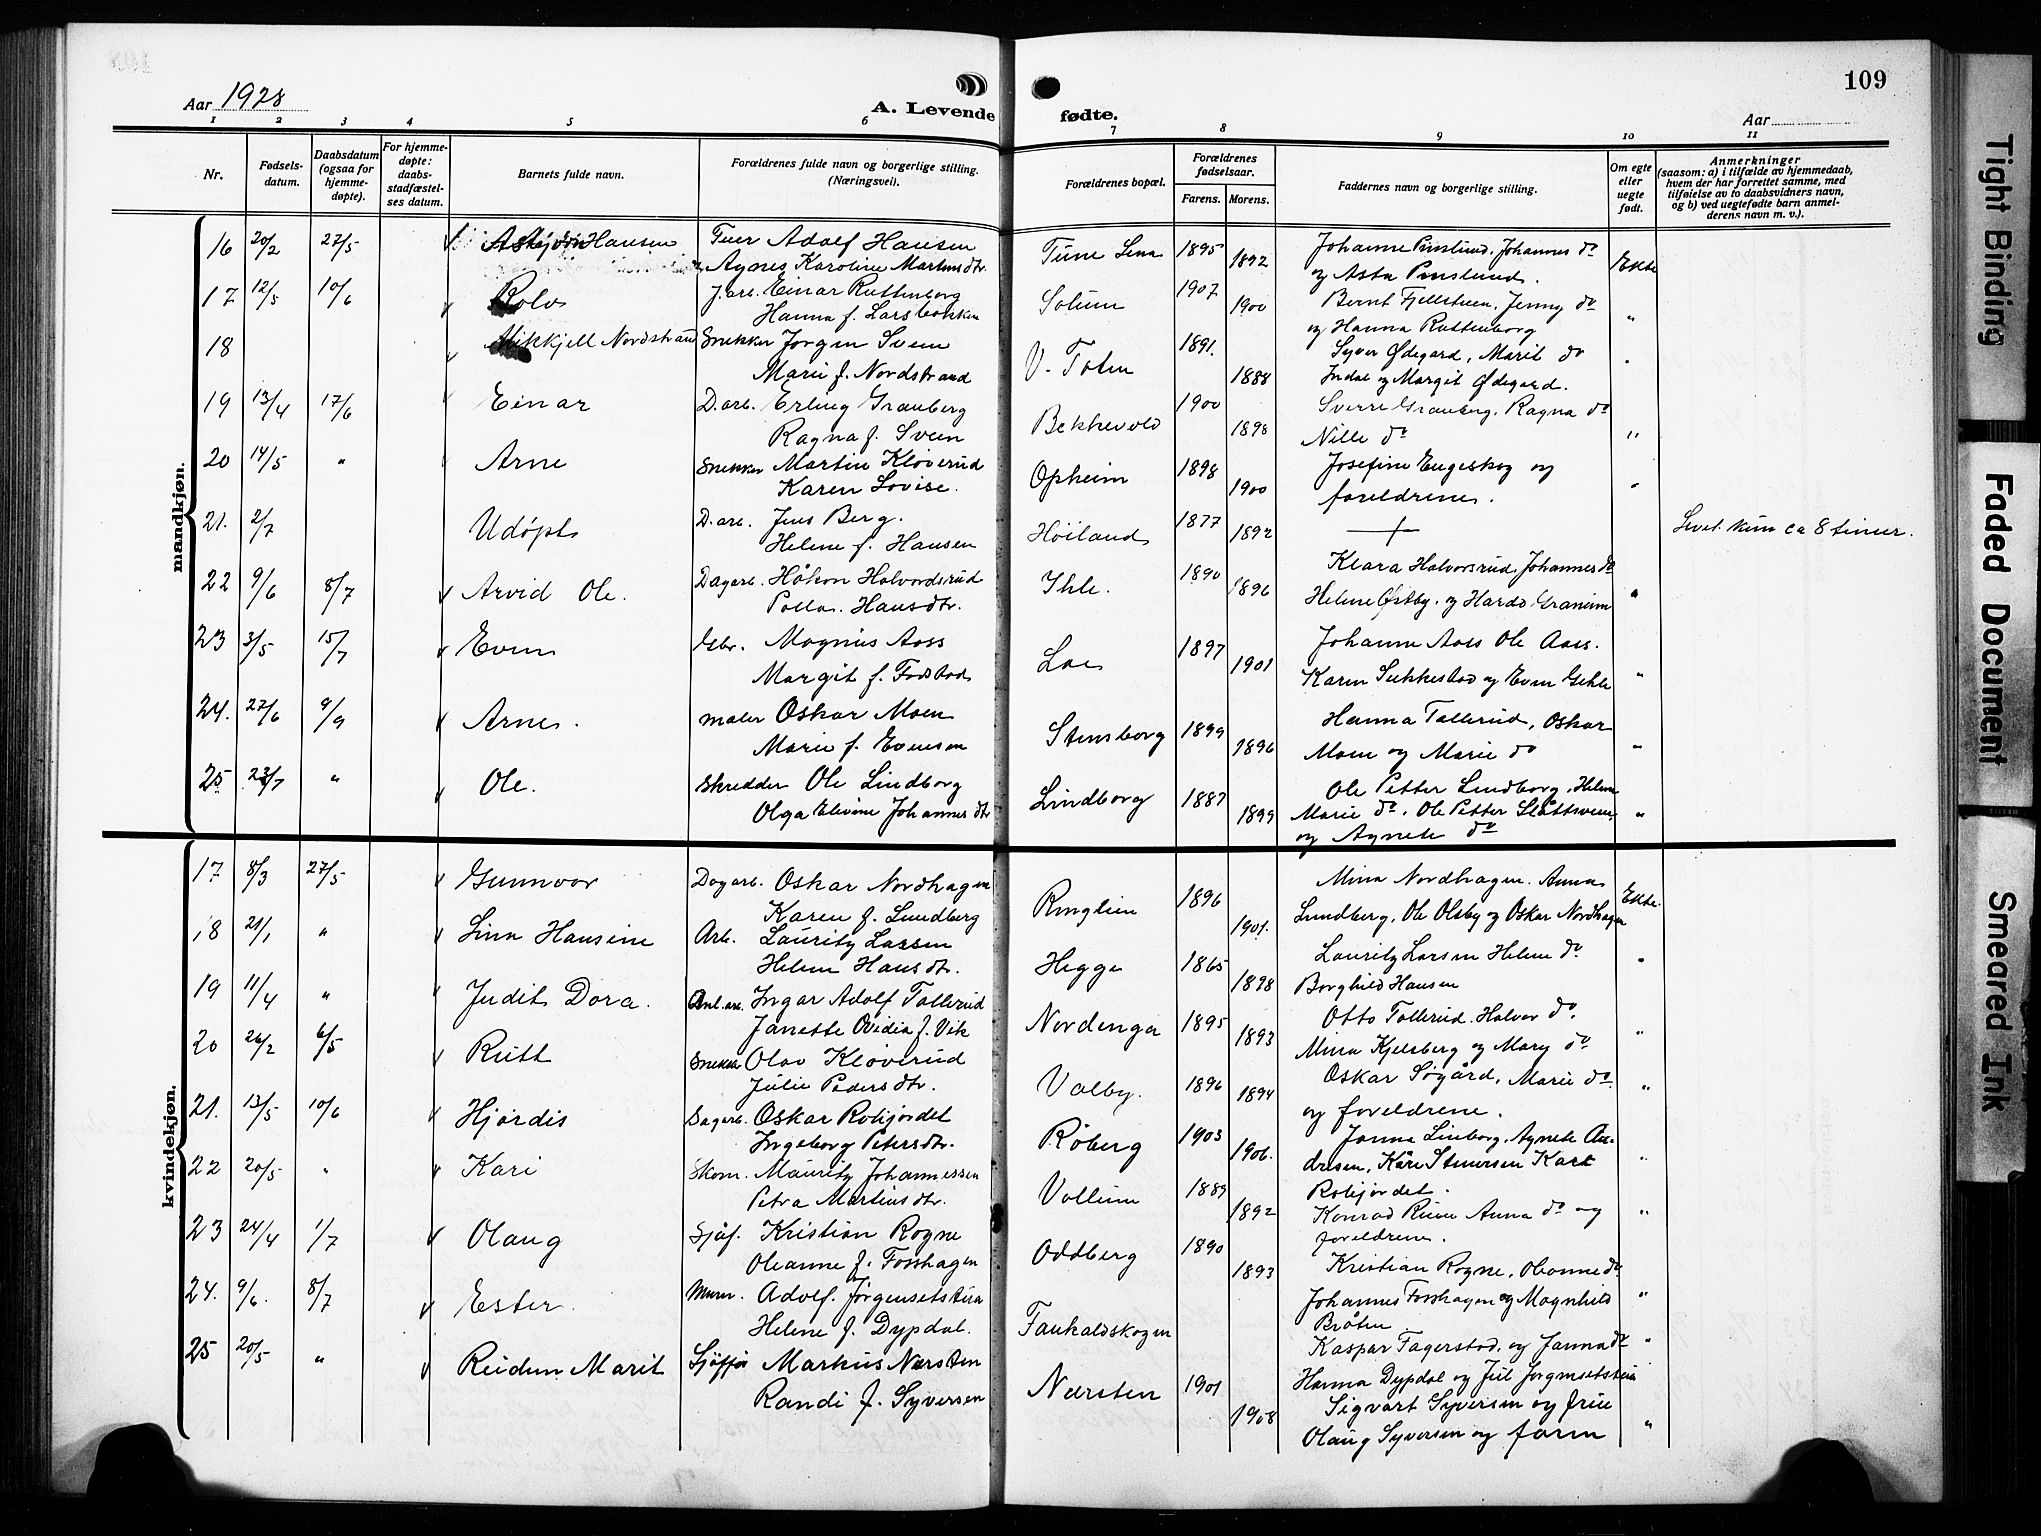 109
Aar 1928
A. Levende fødte.
Aar
1 2 3 4 5 6 7 8 9 10 11
Nr.
Fødsels-
datum.
Daabsdatum
(ogsaa for
hjemme-
døpte).
For hjemme-
døpte:
daabs-
stadfæstel-
ses datum.
Barnets fulde navn.
Forældrenes fulde navn og borgerlige stilling.
(Næringsvei).
Forældrenes bopæl.
Forældrenes
fødselsaar.
Farens. Morens.
Faddernes navn og borgerlige stilling.
Om egte
eller
uegte
født.
Anmerkninger
(saasom: a) i tilfælde av hjemmedaab,
hvem der har forrettet samme, med
tilføielse av to daabsvidners navn,
og b) ved uegtefødte barn anmel-
derens navn m. v.).
mandkjøn.
16 20/2 27/5 Asbjørn Hansen Adolf Hansen Tune Lena 1895 Johanne Pinslund, Johannes do
Agnes Karoline Martinsdtr. 1892 og Asta Pinslund. Ekte
17 12/5 10/6 Rolv J.arb. Einar Ruttenborg Solum 1907 Bernt Fjellstuen, Jenny do
Hanna f. Larsbakken 1900 og Hanna Ruttenborg "
18 Mikkjell Nordstrand Snekker Jørgen Sveen V. Toten 1891. Syver Ødegard, Marit do
Marie f. Nordstrand 1888 Indal og Margit Ødegard. "
19 13/4 17/6 Einar D.arb. Erling Granberg Bekkevold 1900 Sverre Granberg, Ragna do
Ragna f. Sveen 1898 Nille do "
20 14/5 " Arne Snekker Martin Kløverud Opheim 1898 Josefine Engeskog og
Karen Lovise. 1900 foreldrene. "
21. 2/7 Udøpt D.arb. Jens Berg. Høiland 1877 Levet kun ca 8 timer.
Helene f. Hansen 1892
22 9/6 8/7 Arvid Ole. Dagarb. Håkon Halvordsrud Ihle. 1890 Klara Halvorsrud, Johannes do
Hansdtr. 1896 Helene Østby. og "
23 3/5 15/7 Even Magnus Aass 1897 Johanne Aass Ole Aass.
Margit f. Fodstad 1901 Karen Sukkestad og Even "
24. 27/6 9/9 Arne. maler Oskar Moen Stensborg 1899 Hanna Tollerud, Oskar
Marie f. Evensen 1896 Moen og Marie do "
25 23/7 " Ole. Skredder Ole Lindborg Lindborg 1887 Ole Petter Lindborg, Helene
Olga Elevine Johannesdtr 1899 Marie do. Ole Petter Slåttsveen "
og Agnete do
kvindekjøn.
17 8/3 27/5 Gunnvor Dagarb. Oskar Nordhagen Ringlien 1896 Mina Nordhagen. Anna Ekte.
Karen f. Lundberg 1901. Lundberg, Ole Olsby og Oskar Nordhagen
18 21/1 " Lina Hansine Arb. Lauritz Larsen Hegge 1865 Lauritz Larsen Helene do
Helene Hansdtr. 1898 Borghild Hansen "
19 11/4 " Judit Dora. Anl. arb. Ingar Adolf Tollerud Nordenga 1895 Otto Tollerud. Halvor do.
Janette Ovidia f. Vik 1893 Mina Kjelsberg og Mary do "
20 26/2 6/5 Rutt Snekker Olav Kløverud Valby. 1896 Oskar Søgård, Marie do
Julie Pedersdtr. 1894 og foreldrene. "
21. 13/5 10/6 Hjørdis Dagarb. Oskar Røberg 1903 Janna Linborg, Agnete An-
Ingeborg Petersdtr. 1906. dresen, Kåre Stenersen
22 20/5 " Kari Skom. Mauritz Johannessen Vollum 1889
Petra Martinsdtr. 1892 Konrad Anna do og "
foreldrene.
23 24/4 1/7 Olaug Sjåf. Kristian Rogne Oddberg 1890 Kristian Rogne, Oleanne do
Oleanne f. Fosshagen 1893 Johannes Fosshagen og Magnhild "
Bråten
24. 9/6. 8/7 Ester Murer. Adolf. Jørgensetstua Faukaldskogen Kaspar Fagerstad, og Janna do "
Helene f. Dypdal. Hanna Dypdal og Juel Jørgensetstua
25 20/5 " Reidun Marit Sjåffør Markus Nærsten Nærsten 1901 Sigvart Syversen og frue
Randi f. Syversen 1908 Olaug Syversen og faren "
Tight Binding
Faded Document
Smeared Ink